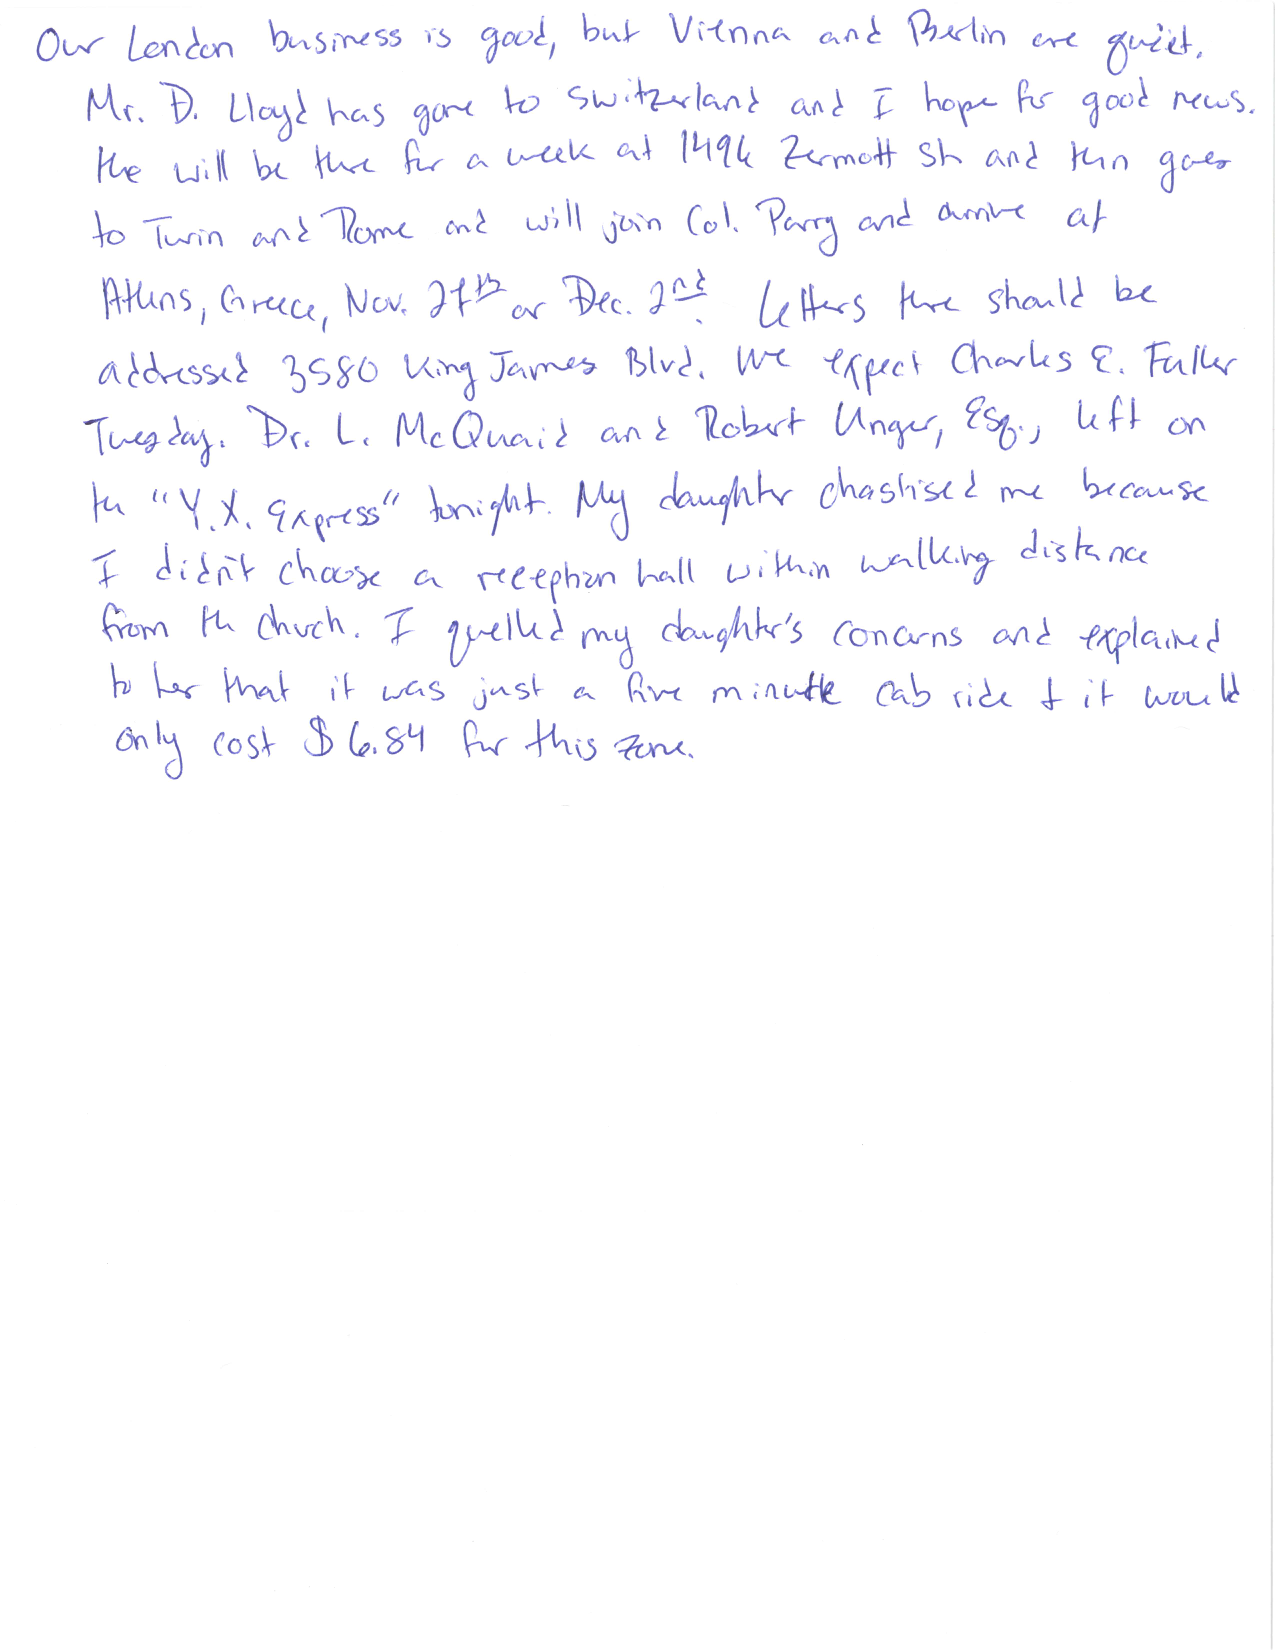 Our London business is good, but Vienna and Berlin are quiet.
Mr. D. Lloyd has gone to Switzerland and I hope for good news.
He will be there for a week at 1496 Zermott St. and then goes
to Turin and Rome and will join Col. Parry and arrive at
Athens, Greece, Nov. 27th or Dec. 2nd. Letters there should be
addressed 3580 King James Blvd. We expect Charles E. Fuller
Tuesday. Dr. L. McQuaid and Robert Unger, Esq., left on
the "Y.X. Express" tonight. My daughter chastised me because
I didn't choose a reception hall within walking distance
from the church. I quelled my daughter's concerns and explained
to her that it was just a five minute cab ride & it would
only cost $6.84 for this zone.